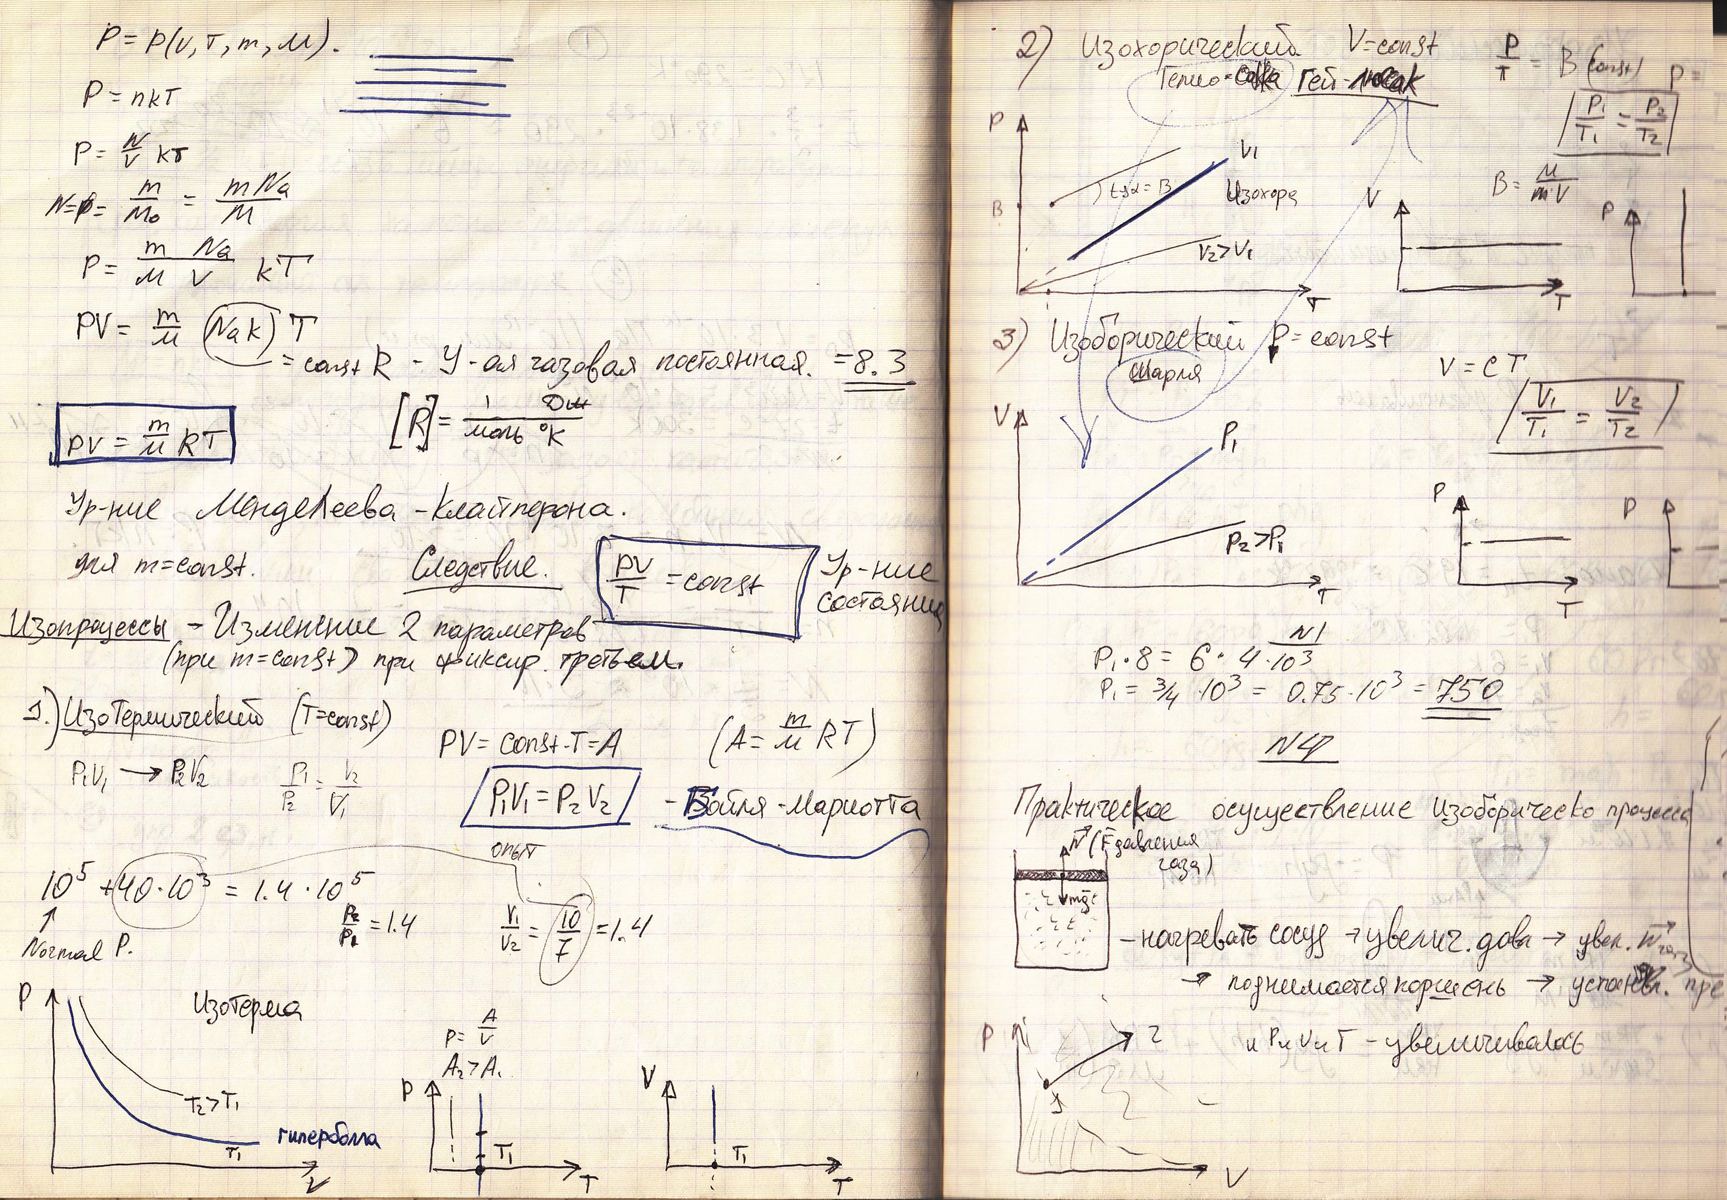 P = P(V, T, m, M).
P = nkT
P = N/V kT
N = m/M₀ = mNa/M
P = m Na / M V kT
PV = m/M (Na k) T
= const R - У-ая газовая постоянная. = 8.3
[R] = 1 Дж / моль °K
PV = m/M RT
Ур-ние Менделеева - Клайперона.
для m = const. Следствие. PV/T = const Ур-ние
состояния
Изопроцессы - Изменение 2 параметров
(при m = const) при фиксир. третьем.
1.) Изотермический (T = const)
PV = const · T = A (A = m/M RT)
P₁V₁ → P₂V₂ P₁/P₂ = V₂/V₁
P₁V₁ = P₂V₂ - Бойля - Мариотта
опыт
10⁵ + 40·10³ = 1.4·10⁵
Normal P.
P₂/P₁ = 1.4 V₁/V₂ = 10/7 = 1.4
P Изотерма
T₂ > T₁
T₁
гипербола
V
P = A/V
A₂ > A₁
P T₁ T
V T₁ T
2) Изохорический V = const P/T = B (const) P =
Гей-люсак
P₁/T₁ = P₂/T₂
B = M/m·V
P V₁
tgα = B
B
Изохора
V₂ > V₁
T
V T
P
3) Изоборический P = const
Шарля
V = CT
V₁/T₁ = V₂/T₂
V P₁
P₂ > P₁
T
P T
P
N1
P₁ · 8 = 6 · 4 · 10³
P₁ = 3/4 · 10³ = 0.75 · 10³ = 750
N4
Практическое осуществление изоборическо процесса
N (F давления
газа)
mg
- нагревать сосуд → увелич. давл → увел.
→ поднимается поршень →
P 2
1
V
и P и V и T - увеличивалось